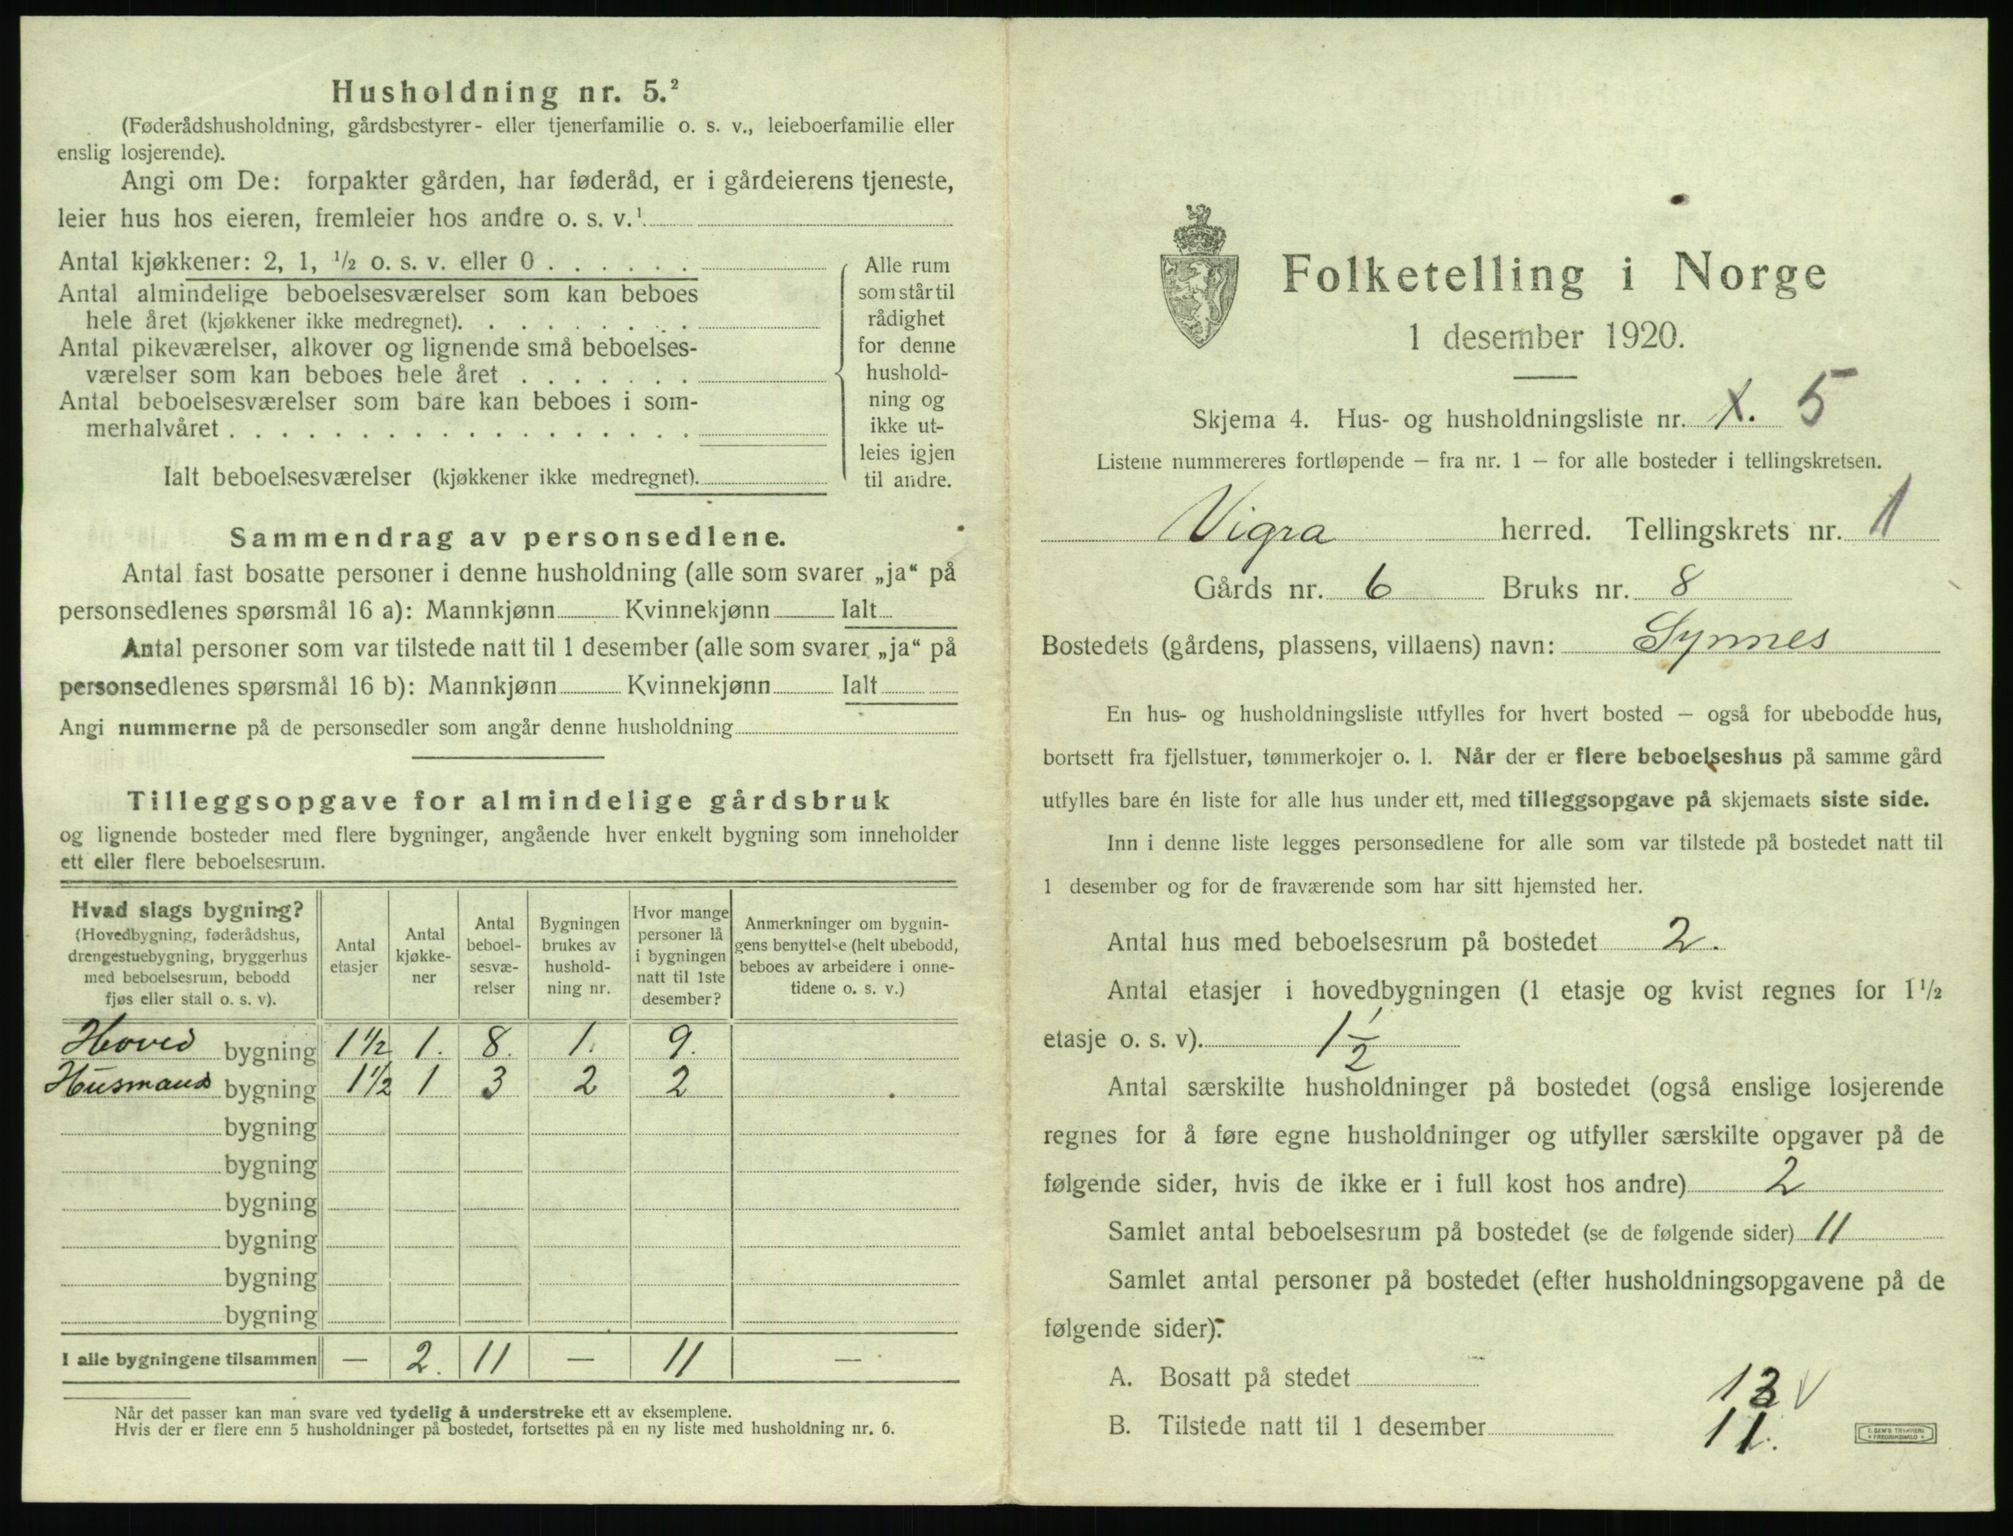 Husholdning nr. 5.²
(Føderådshusholdning, gårdsbestyrer- eller tjenerfamilie o. s. v., leieboerfamilie eller
enslig losjerende).
Angi om De: forpakter gården, har føderåd, er i gårdeierens tjeneste,
leier hus hos eieren, fremleier hos andre o. s. v.¹
Antal kjøkkener: 2, 1, ½ o. s. v. eller 0 . . . . . .
Antal almindelige beboelsesværelser som kan beboes
hele året (kjøkkener ikke medregnet). . . . . . . . .
Antal pikeværelser, alkover og lignende små beboelses-
værelser som kan beboes hele året . . . . . . .
Antal beboelsesværelser som bare kan beboes i som-
merhalvåret . . . . . . . . . . . . . . . . . .
Ialt beboelsesværelser (kjøkkener ikke medregnet).
Alle rum
som står til
rådighet
for denne
hushold-
ning og
ikke ut-
leies igjen
til andre.
Sammendrag av personsedlene.
Antal fast bosatte personer i denne husholdning (alle som svarer „ja“ på
personsedlenes spørsmål 16 a): Mannkjønn Kvinnekjønn Ialt
Antal personer som var tilstede natt til 1 desember (alle som svarer „ja“ på
personsedlenes spørsmål 16 b): Mannkjønn Kvinnekjønn Ialt
Angi nummerne på de personsedler som angår denne husholdning
Tilleggsopgave for almindelige gårdsbruk
og lignende bosteder med flere bygninger, angående hver enkelt bygning som inneholder
ett eller flere beboelsesrum.
Hvad slags bygning?
(Hovedbygning, føderådshus,
drengestuebygning, bryggerhus
med beboelsesrum, bebodd
fjøs eller stall o. s. v).
Antal
etasjer
Antal
kjøkke-
ner
Antal
beboel-
sesvæ-
relser
Bygningen
brukes av
hushold-
ning nr.
Hvor mange
personer lå
i bygningen
natt til 1ste
desember?
Anmerkninger om bygnin-
gens benyttelse (helt ubebodd,
beboes av arbeidere i onne-
tidene o. s. v.)
Hoved bygning 1½ 1. 8. 1. 9.
Husmands bygning 1½ 1 3 2 2
bygning
bygning
bygning
bygning
bygning
bygning
I alle bygningene tilsammen — 2. 11 — 11 —
Når det passer kan man svare ved tydelig å understreke ett av eksemplene.
Hvis der er flere enn 5 husholdninger på bostedet, fortsettes på en ny liste med husholdning nr. 6.
Folketelling i Norge
1 desember 1920.
Skjema 4. Hus- og husholdningsliste nr. X. 5
Listene nummereres fortløpende – fra nr. 1 – for alle bosteder i tellingskretsen.
Vigra herred. Tellingskrets nr. 1
Gårds nr. 6 Bruks nr. 8
Bostedets (gårdens, plassens, villaens) navn: Synnes
En hus- og husholdningsliste utfylles for hvert bosted – også for ubebodde hus,
bortsett fra fjellstuer, tømmerkojer o. l. Når der er flere beboelseshus på samme gård
utfylles bare én liste for alle hus under ett, med tilleggsopgave på skjemaets siste side.
Inn i denne liste legges personsedlene for alle som var tilstede på bostedet natt til
1 desember og for de fraværende som har sitt hjemsted her.
Antal hus med beboelsesrum på bostedet 2.
Antal etasjer i hovedbygningen (1 etasje og kvist regnes for 1½
etasje o. s. v). 1½
Antal særskilte husholdninger på bostedet (også enslige losjerende
regnes for å føre egne husholdninger og utfyller særskilte opgaver på de
følgende sider, hvis de ikke er i full kost hos andre) 2
Samlet antal beboelsesrum på bostedet (se de følgende sider) 11
Samlet antal personer på bostedet (efter husholdningsopgavene på de
følgende sider):
A. Bosatt på stedet 13 V
B. Tilstede natt til 1 desember 11.